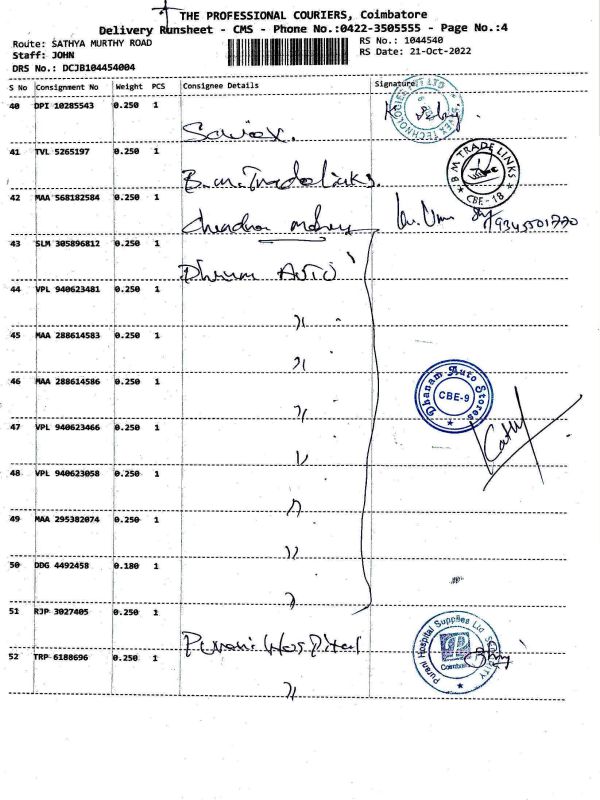 THE PROFESSIONAL COURIERS, Coimbatore
Delivery Runsheet - CMS - Phone No.:0422-3505555 - Page No.:4
Route: SATHYA MURTHY ROAD
RS No.: 1044540
Staff: JOHN
RS Date: 21-Oct-2022
DRS No.: DCJB104454004
S No Consignment No Weight PCS Consignee Details Signature
40 DPI 10285543 0.250 1
41 TVL 5265197 0.250 1
B.M. Trade links.
B M TRADE LINKS
CBE - 18
42 MAA 568182584 0.250 1
9345501770
43 SLM 305896812 0.250 1
Auto
44 VPL 940623481 0.250 1
45 MAA 288614583 0.250 1
46 MAA 288614586 0.250 1
Dhanam Auto Stores
CBE-9
47 VPL 940623466 0.250 1
48 VPL 940623058 0.250 1
49 MAA 295382074 0.250 1
50 DDG 4492458 0.180 1
51 RJP 3027405 0.250 1
Purani Hospital
Purani Hospital Supplies Ltd SECURITY
52 TRP 6188696 0.250 1